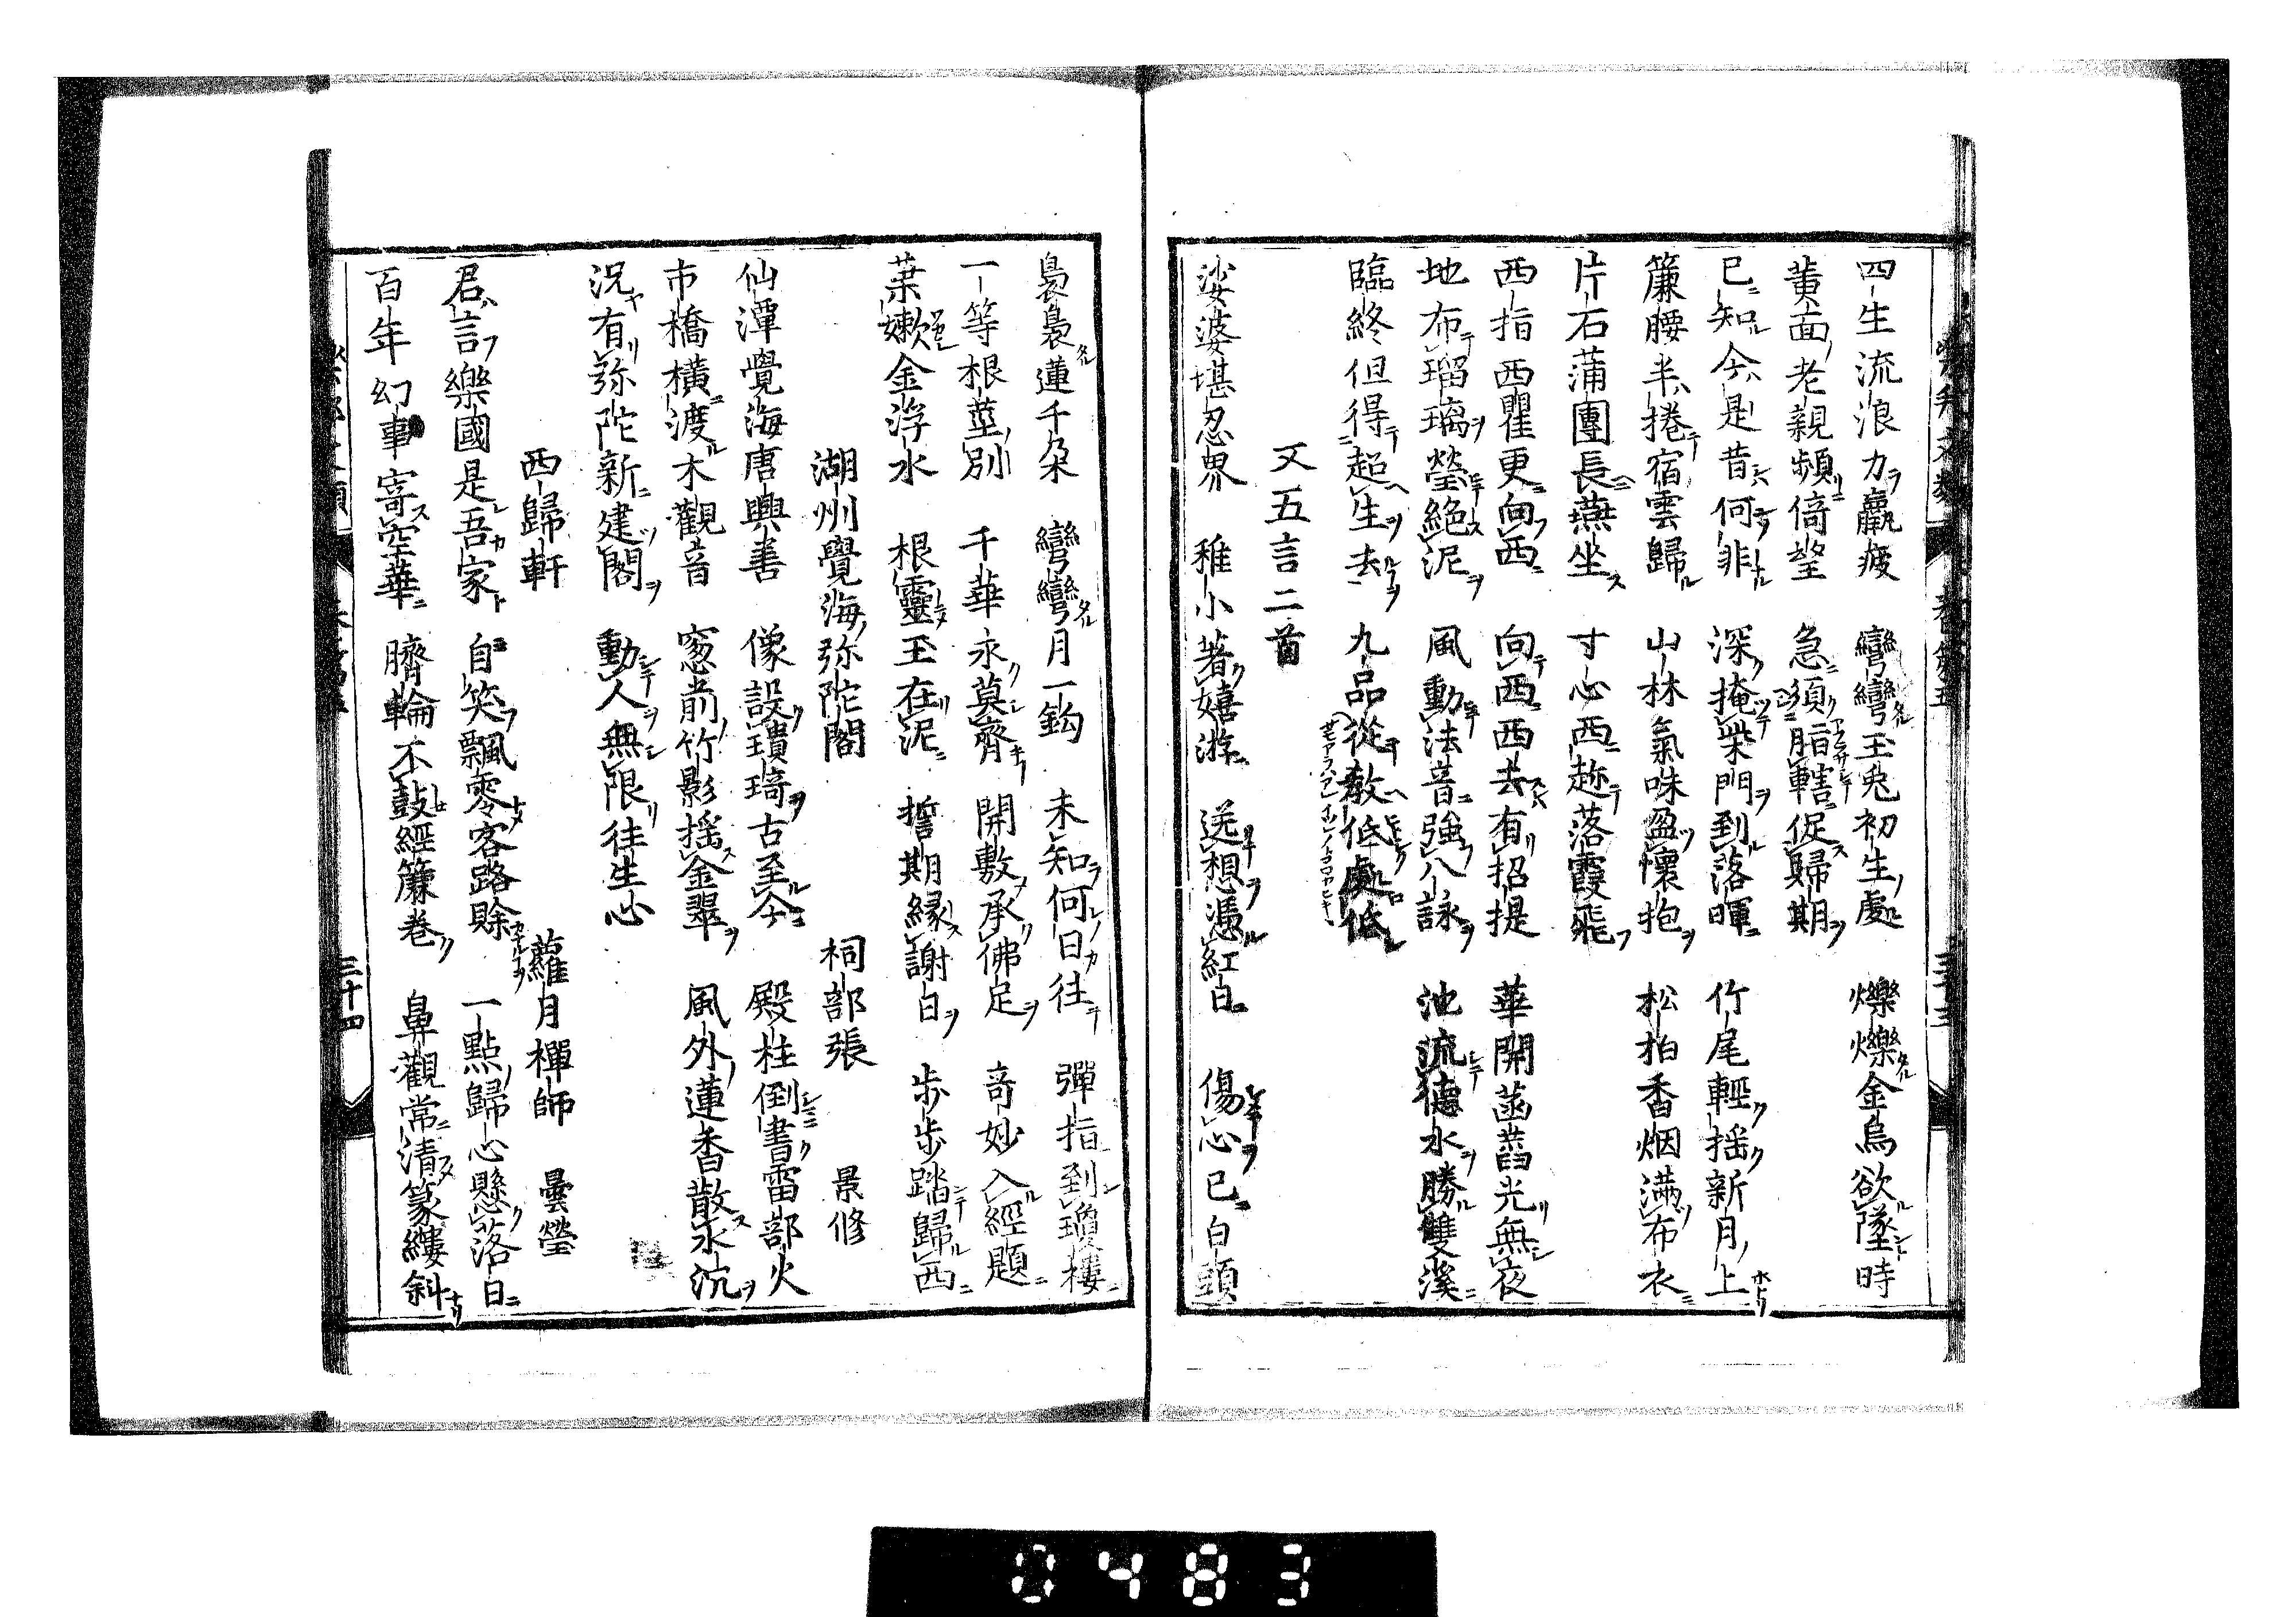 四生流浪力羸疲　彎彎玉兎初生處　爍爍金烏欲墜時
黃面老親頻倚望　急須脂轄促歸期
已知今是昔何非　深掩柴門到落暉　竹尾輕搖新月上
簾腰半捲宿雲歸　山林氣味盈懷抱　松柏香烟滿布衣
片石蒲團長燕坐　寸心西趂落霞飛
西指西瞿更向西　向西西去有招提　華開菡萏光無夜
地布瑠璃瑩絶泥　風動法音強八詠　池流德水勝雙溪
臨終但得超生去　九品從教低處低
又五言二首
娑婆堪忍界　稚小著嬉游　送想憑紅日　傷心已白頭
裊裊蓮千朶　彎彎月一鈎　未知何日往　彈指到瓊樓
一等根莖別　千華永莫齊　開敷承佛足　奇妙入經題
葉嫰金浮水　根靈玉在泥　誓期緣謝日　步步踏歸西
湖州覺海弥陀閣　祠部張　景修
仙潭覺海唐興善　像設瓌琦古至今　殿柱倒書雷部火
市橋橫渡木觀音　窓前竹影搖金翠　風外蓮香散水沉
況有弥陀新建閣　動人無限往生心
西歸軒　蘿月禪師　曇瑩
君言樂國是吾家　自笑飄零客路賖　一點歸心懸落日
百年幻事寄空華　臍輪不鼓經簾卷　鼻觀常清篆縷斜
三十四
0483